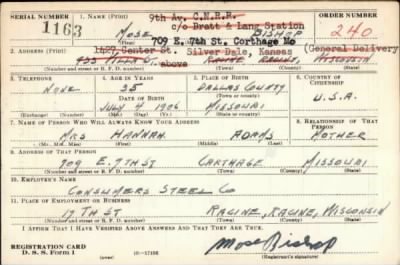 SERIAL NUMBER
1. NAME (Print)
9th Av. C.N.R.R.
ORDER NUMBER
c/o Bratt & Lang Station
1163
MOSE BISHOP
240
709 E. 7th St. Corthage Mo
(First) (Middle) (Last)
1427 Center St. Silver Dale, Kansas (General Delivery
2. ADDRESS (Print)
above RACINE RACINE WISCONSIN
(Number and street or R. F. D. number) (Town) (County) (State)
3. TELEPHONE
4. AGE IN YEARS
5. PLACE OF BIRTH
6. COUNTRY OF CITIZENSHIP
NONE
35
DALLAS COUNTY
DATE OF BIRTH
JULY 4 1906
MISSOURI
U.S.A.
(Exchange) (Number) (Mo.) (Day) (Yr.) (State or country)
7. NAME OF PERSON WHO WILL ALWAYS KNOW YOUR ADDRESS
8. RELATIONSHIP OF THAT PERSON
MRS HANNAH ADAMS
MOTHER
(Mr., Mrs., Miss) (First) (Middle) (Last)
9. ADDRESS OF THAT PERSON
709 E. 7TH ST CARTHAGE MISSOURI
(Number and street or R. F. D. number) (Town) (County) (State)
10. EMPLOYER'S NAME
CONSUMERS STEEL CO
11. PLACE OF EMPLOYMENT OR BUSINESS
17TH ST RACINE, RACINE, WISCONSIN
(Number and street or R. F. D. number) (Town) (County) (State)
I AFFIRM THAT I HAVE VERIFIED ABOVE ANSWERS AND THAT THEY ARE TRUE.
REGISTRATION CARD
D. S. S. Form 1
16—17105
Mose Bishop
(Registrant's signature)